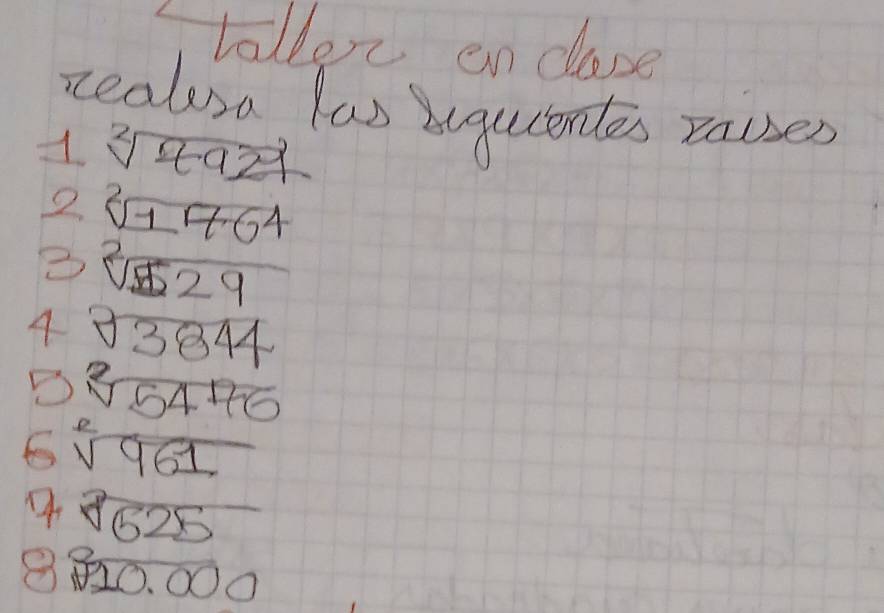 Taller en clase
realisa las siguientes raises
1 ²√7921
2 ²√1764
3 ²√529
4 ²√3844
5 ²√5476
6 ²√961
7 ²√625
8 ²√10.000